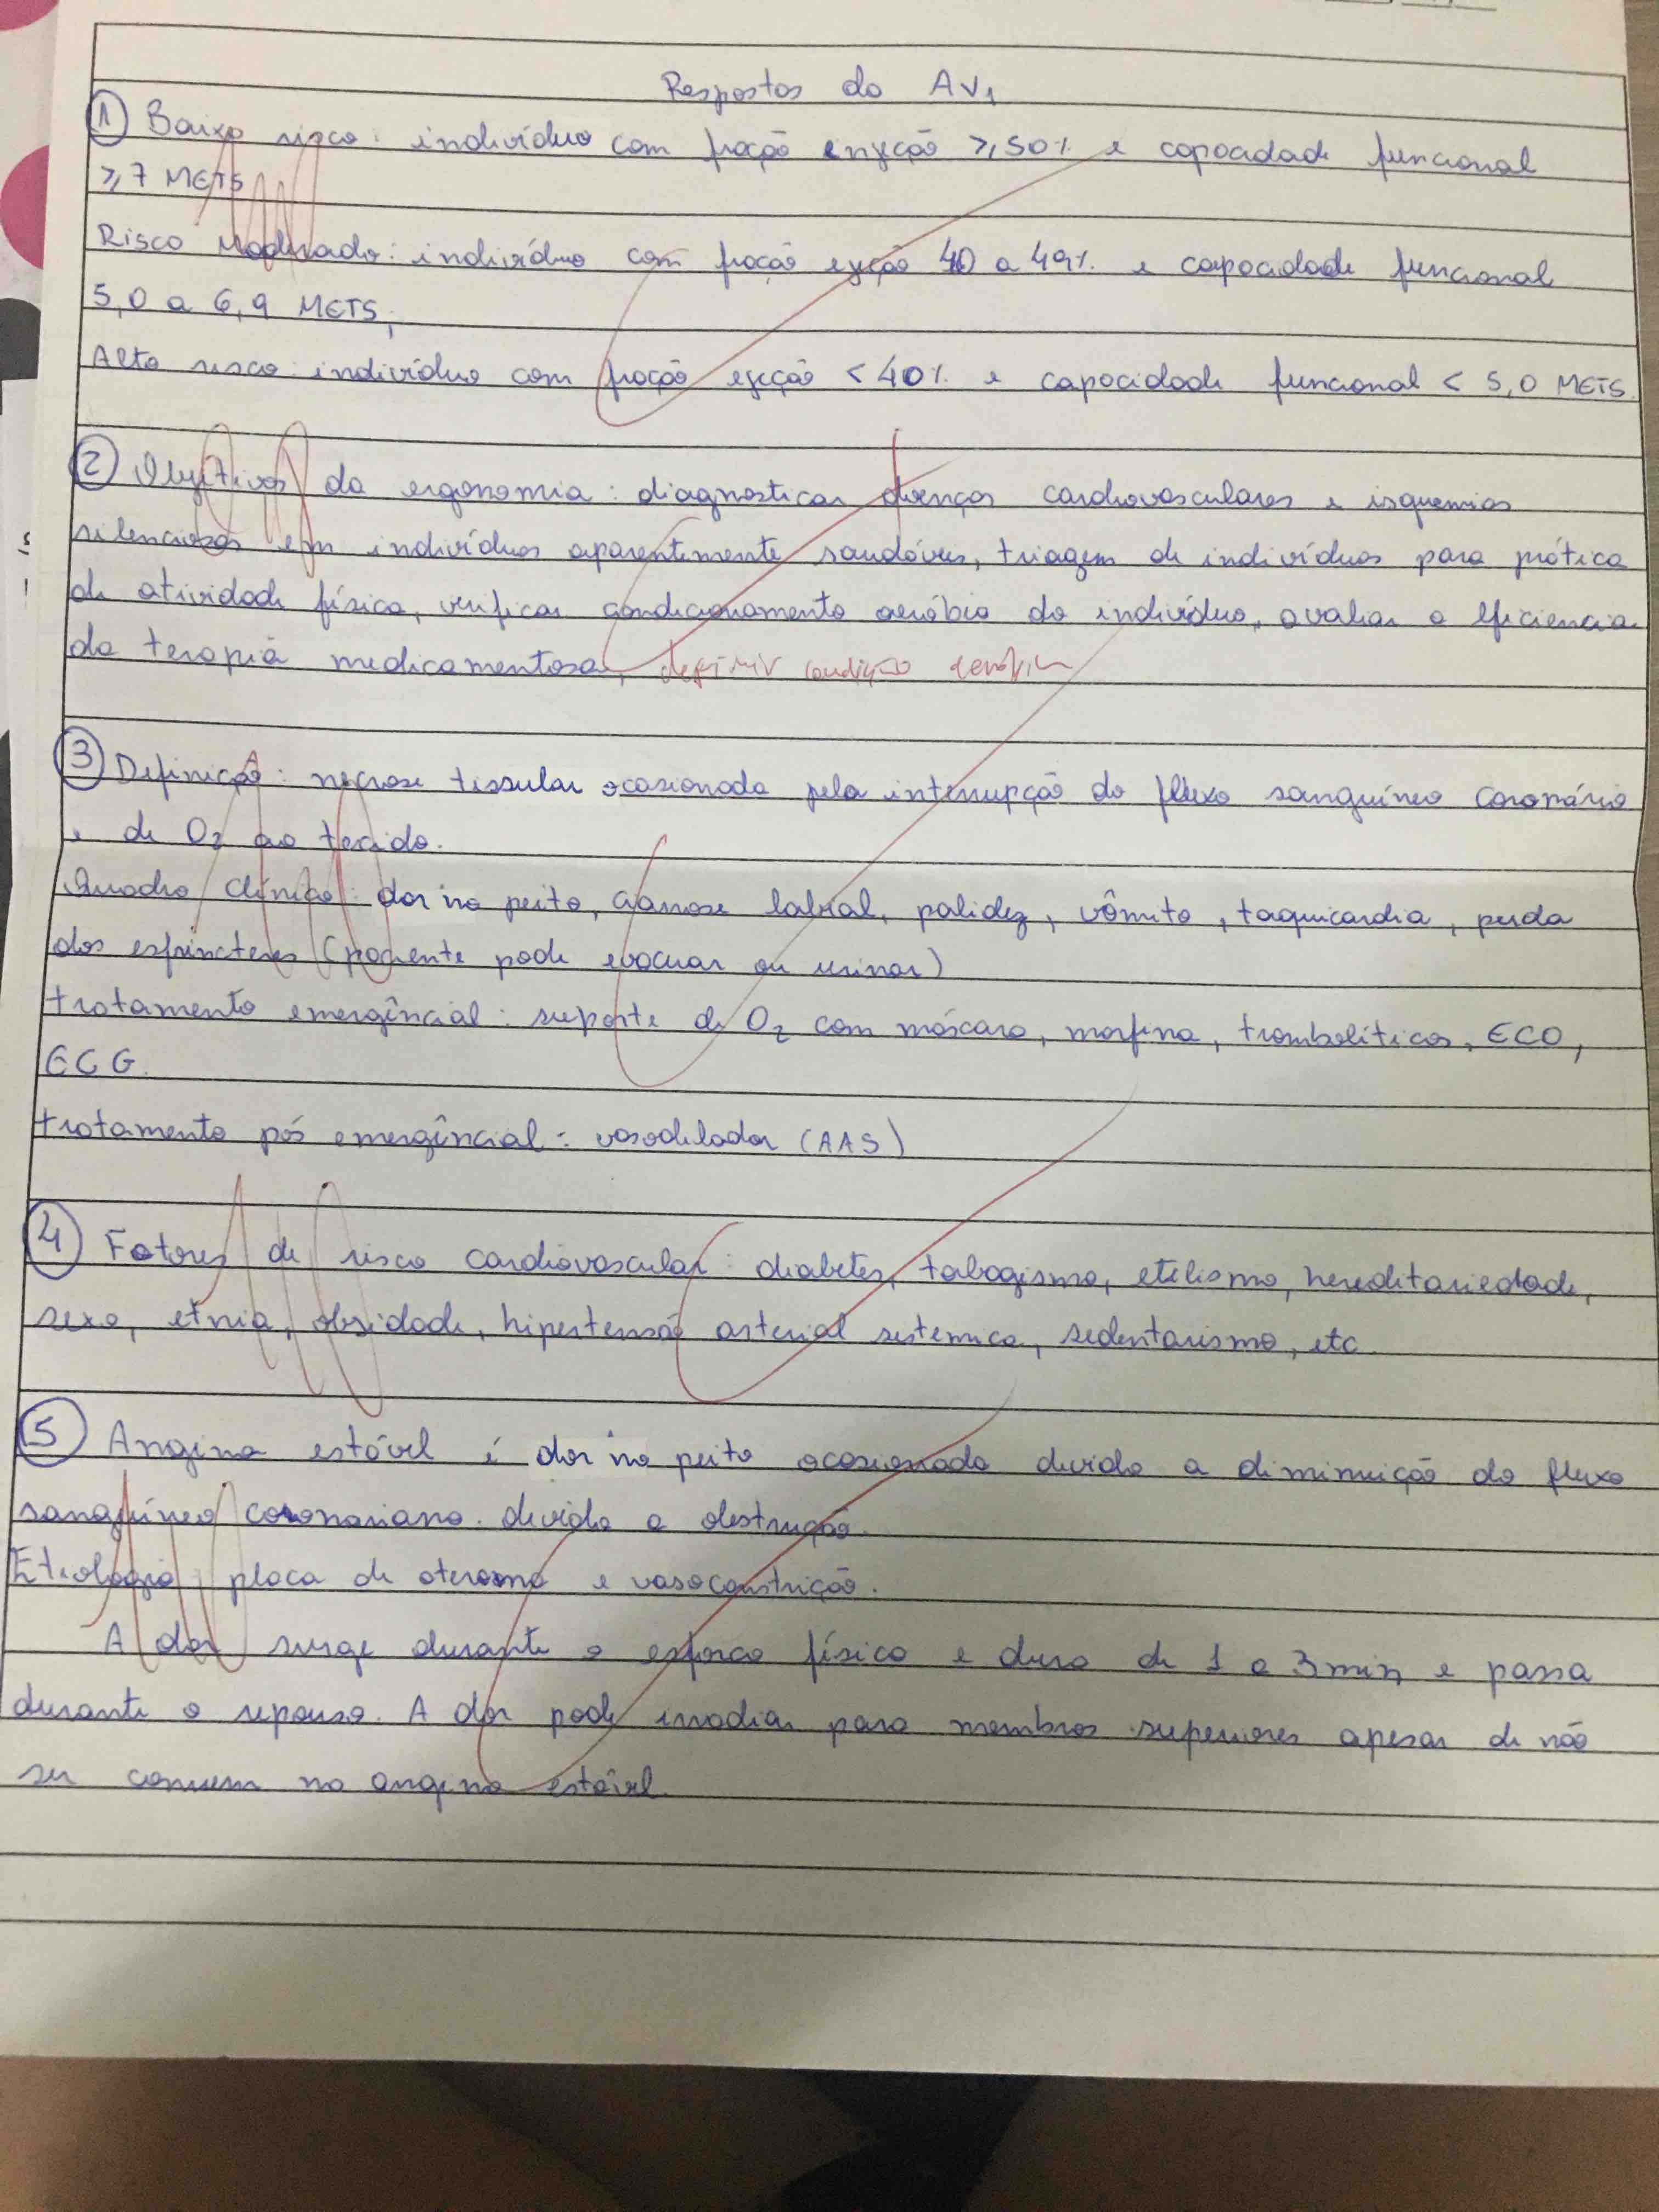 Respostas da AV1
1 Baixo risco: indivíduo com fração enjeção ≥50% e capacidade funcional
≥7 METS
Risco Moderado: indivíduo com fração ejeção 40 a 49% e capacidade funcional
5,0 a 6,9 METS;
Alto risco: indivíduo com fração ejeção <40% e capacidade funcional < 5,0 METS.
2 Objetivos da ergonomia: diagnosticar doenças cardiovasculares e isquemias
silenciosas em indivíduos aparentemente saudáveis, triagem de indivíduos para prática
de atividade física, verificar condicionamento aeróbio do indivíduo, avaliar a eficiencia
da terapia medicamentosa, definir condição
3 Definição: necrose tissular ocasionada pela interrupção do fluxo sanguíneo coronário
e de O2 ao tecido.
Quadro clínico: dor no peito, cianose labial, palidez, vômito, taquicardia, perda
dos esfincteres (paciente pode evacuar ou urinar)
tratamento emergêncial: suporte de O2 com máscara, morfina, trombolíticos, ECO,
ECG.
tratamento pós emergêncial: vasodilador (AAS)
4 Fatores de risco cardiovascular: diabetes, tabagismo, etilismo, hereditariedade,
sexo, etnia, obsidade, hipertensão arterial sistemica, sedentarismo, etc.
5 Angina estável é dor no peito ocasionada devido a diminuição do fluxo
sanguíneo coronariano devido a obstrução.
Etiologia: placa de ateroma e vasoconstrição.
A dor surge durante o esforço físico e dura de 1 a 3 min e passa
durante o repouso. A dor pode irradiar para membros superiores apesar de não
ser comum na angina estável.